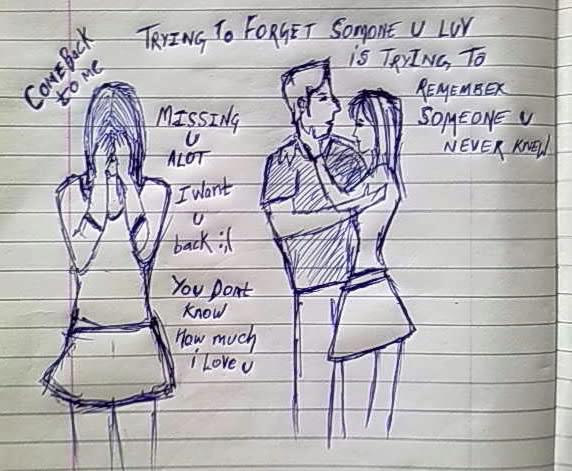 TRYING TO FORGET SOMONE U LUV
IS TRYING TO
REMEMBER
SOMEONE U
NEVER KNEW
COME BACK
to me
MISSING
U
ALOT
I Want
U
back :,(
YOU DONT
KNOW
How much
i Love u